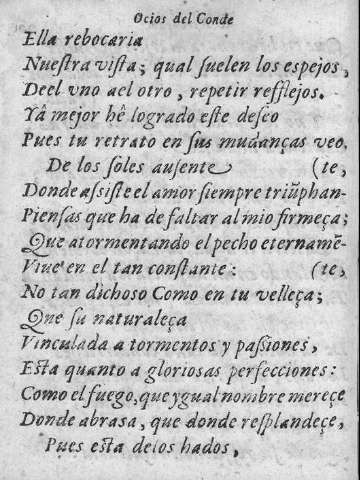 Ocios del Conde
Ella rebocaria
Nuestra vista; qual suelen los espejos,
Deel vno ael otro, repetir refflejos.
Yâ mejor hê logrado este deseo
Pues tu retrato en sus mudanças veo.
De los soles ausente (te,
Donde assiste el amor siempre triũphan-
Piensas que ha de faltar al mio firmeça;
Que atormentando el pecho eternamẽ-
Viue en el tan constante: (te,
No tan dichoso Como en tu velleça;
Que su naturaleça
Vinculada a tormentos y passiones,
Esta quanto a gloriosas perfecciones:
Como el fuego, que ygual nombre mereçe
Donde abrasa, que donde resplandeçe,
Pues esta delos hados,